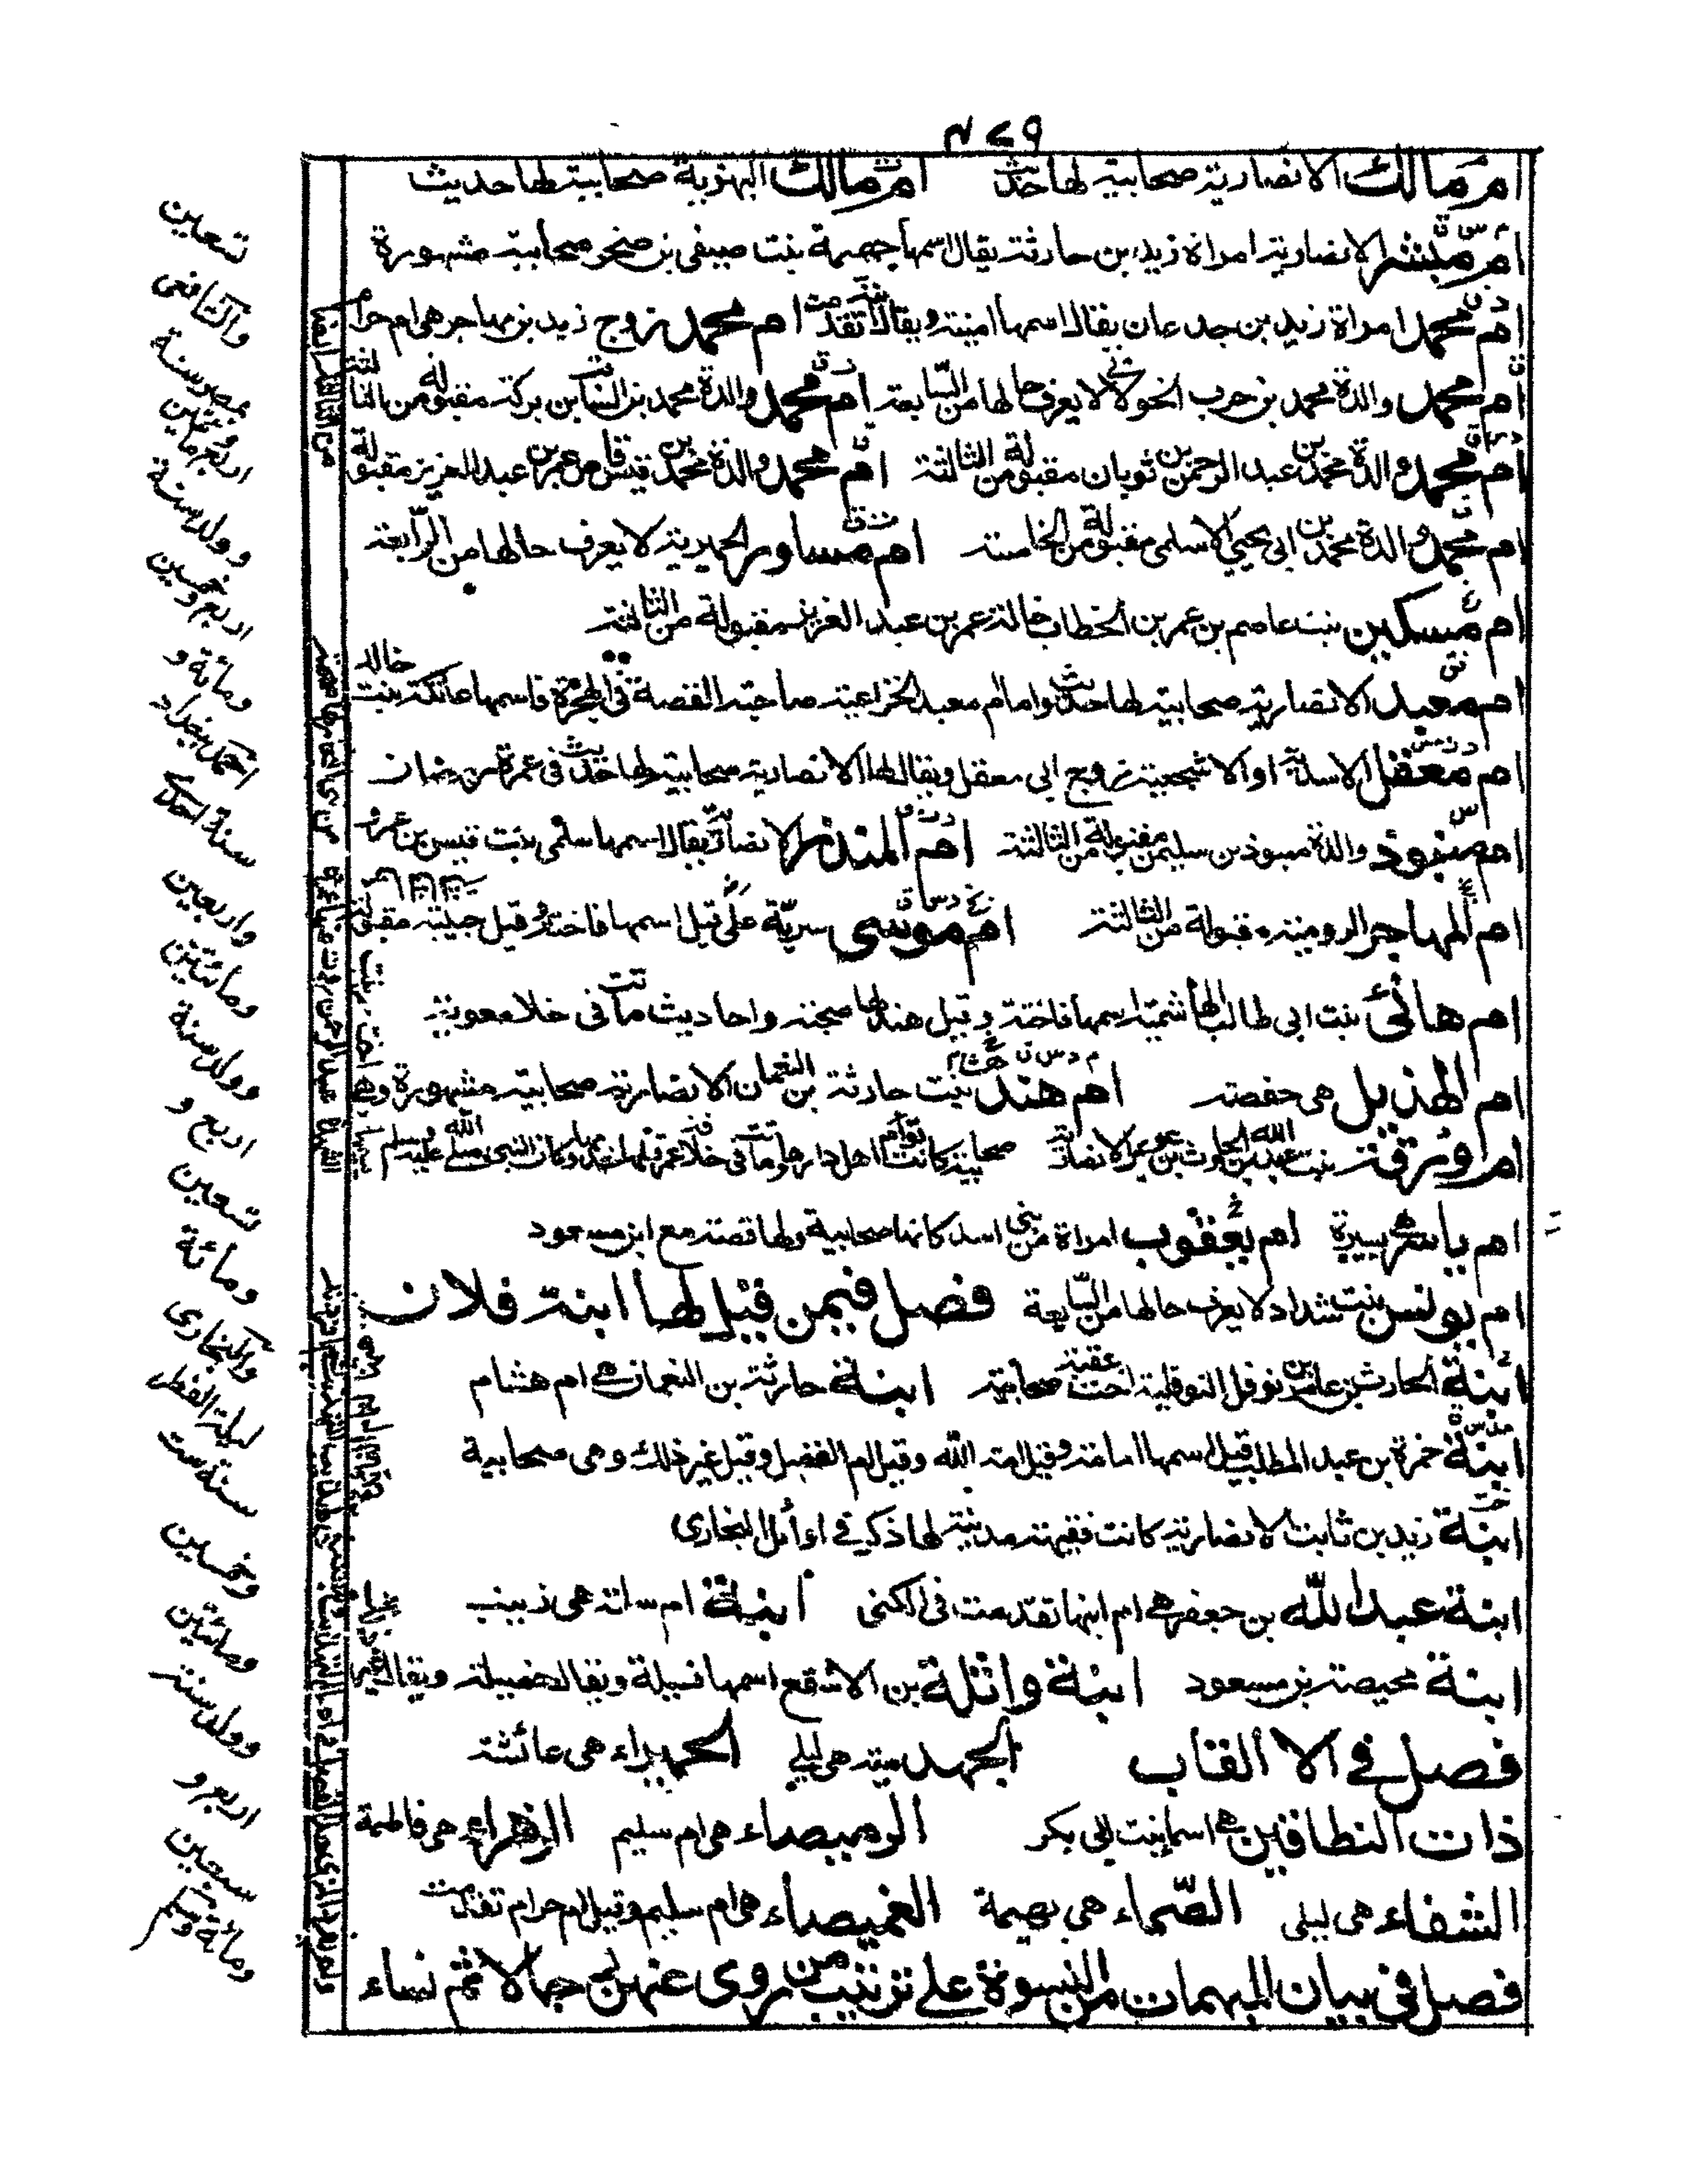 ٤٧٩
ام مالك الانصارية صحابية لها حديث ام مالك البهزية صحابية لها حديث
ام مبشر الانصارية امراة زيد بن حارثة يقال اسمها جهيمة بنت صيفى بن صخر صحابية مشهورة
ام محمد امراة زيد بن جدعان يقال اسمها امينة ويقال امية تقدمت ام محمد زوج زيد بن مهاجر هى ام حرام
ام محمد والدة محمد بن حرب الخولانى لا يعرف حالها من السابعة ام محمد والدة محمد بن السائب بن بركة مقبولة من الثالثة
ام محمد والدة محمد بن عبد الرحمن بن ثوبان مقبولة من الثالثة ام محمد والدة محمد بن قيس قاص عمر بن عبد العزيز مقبولة
ام محمد والدة محمد بن ابى يحيى الاسلمى مقبولة من الخامسة ام مساور الحميرية لا يعرف حالها من الرابعة
ام مسكين بنت عاصم بن عمر بن الخطاب خالة عمر بن عبد العزيز مقبولة من الثالثة
ام معبد الانصارية صحابية لها حديث واما ام معبد الخزاعية صاحبة القصة فى الهجرة فاسمها عاتكة بنت خالد
ام معقل الاسدية او الاشجعية زوج ابى معقل ويقال لها الانصارية صحابية لها حديث فى عمرة من رمضان
ام منبوذ والدة منبوذ بن سليمن مقبولة من الثالثة ام المنذر الانصارية يقال اسمها سلمى بنت قيس بن عمرو
ام المهاجر الرومية مقبولة من الثالثة ام موسى سرية على قيل اسمها فاختة وقيل حبيبة مقبولة
ام هانئ بنت ابى طالب الهاشمية اسمها فاختة وقيل هند لها صحبة واحاديث ماتت فى خلا معوية
ام الهذيل هى حفصة ام هشام بنت حارثة بن النعمان الانصارية صحابية مشهورة وهى
ام ورقة بنت عبد الله بن الحارث بن عويمر الانصارية صحابية كانت تؤم اهل دارها وماتت فى خلافة عمر قتلها خدمها وكان النبى صلى الله عليه وسلم
ام ياسر هى يسيرة ام يعقوب امراة من بنى اسد كانها صحابية ولها قصة مع ابن مسعود
ام يونس بنت شداد لا يعرف حالها من السابعة فصل فيمن قيل لها ابنة فلان
ابنة الحارث بن عامر بن نوفل النوفلية اخت عقبة صحابية ابنة حارثة بن النعمان هى ام هشام
ابنة حمزة بن عبد المطلب قيل اسمها امامة وقيل امة الله وقيل ام الفضل وقيل غير ذلك وهى صحابية
ابنة زيد بن ثابت الانصارية كانت فقيهة مدنية لها ذكر فى اوائل البخارى
ابنة عبد الله بن جعفر هى ام ابيها تقدمت فى الكنى ابنة ام سلمة هى زينب
ابنة محيصة بن مسعود ابنة واثلة بن الاسقع اسمها فسيلة ويقال خصيلة ويقال
فصل فى الالقاب الجهدمية هى ليلى الحميراء هى عائشة
ذات النطاقين هى اسما بنت ابى بكر الرميصاء هى ام سليم الزهراء هى فاطمة
الشفاء هى ليلى الصماء هى بهيمة الغميصاء هى ام سليم وقيل ام حرام تقدمت
فصل فى بيان المبهمات من النسوة على ترتيب من روى عنهن رجالا ثم نساء
تسعين
والشافعى
بمصر سنة
اربع ومائتين
وولد سنة
خمسين
ومائة و
احمد ببغداد
سنة احدى
واربعين
ومائتين
وولد سنة
اربع و
ستين
ومائة
والبخارى
ليلة الفطر
سنة ست
وخمسين
ومائتين
وولد سنة
اربع و
تسعين
ومائة ومسلم